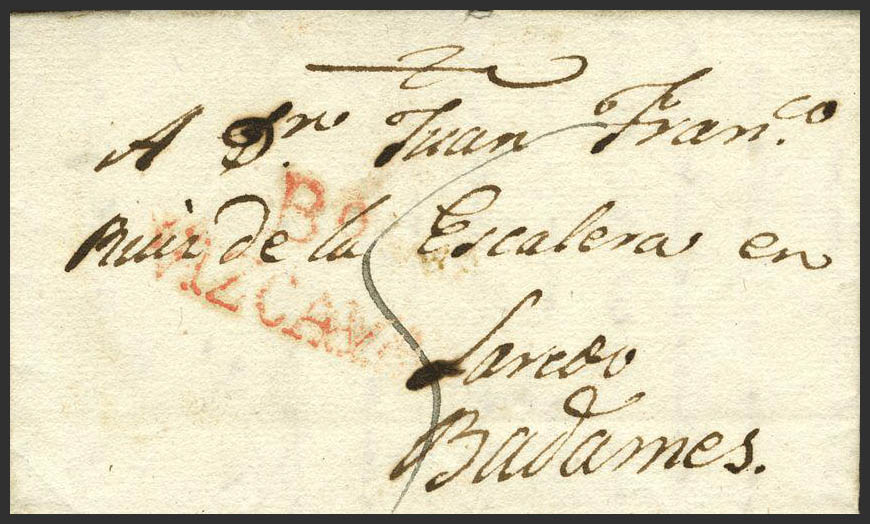 A Dn. Juan Franco.
Ruiz de la Escalera en
Laredo
Badames.
Bo
VIZCAYA